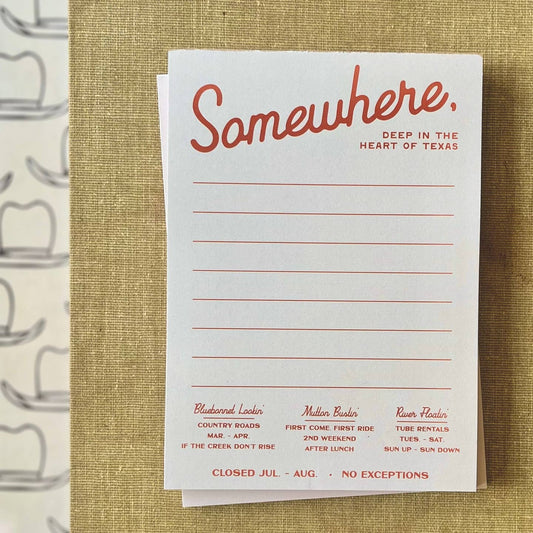 Somewhere,
DEEP IN THE
HEART OF TEXAS
Bluebonnet Lookin'
COUNTRY ROADS
MAR. - APR.
IF THE CREEK DON'T RISE
Mutton Bustin'
FIRST COME, FIRST RIDE
2ND WEEKEND
AFTER LUNCH
River Floatin'
TUBE RENTALS
TUES. - SAT.
SUN UP - SUN DOWN
CLOSED JUL. - AUG. · NO EXCEPTIONS